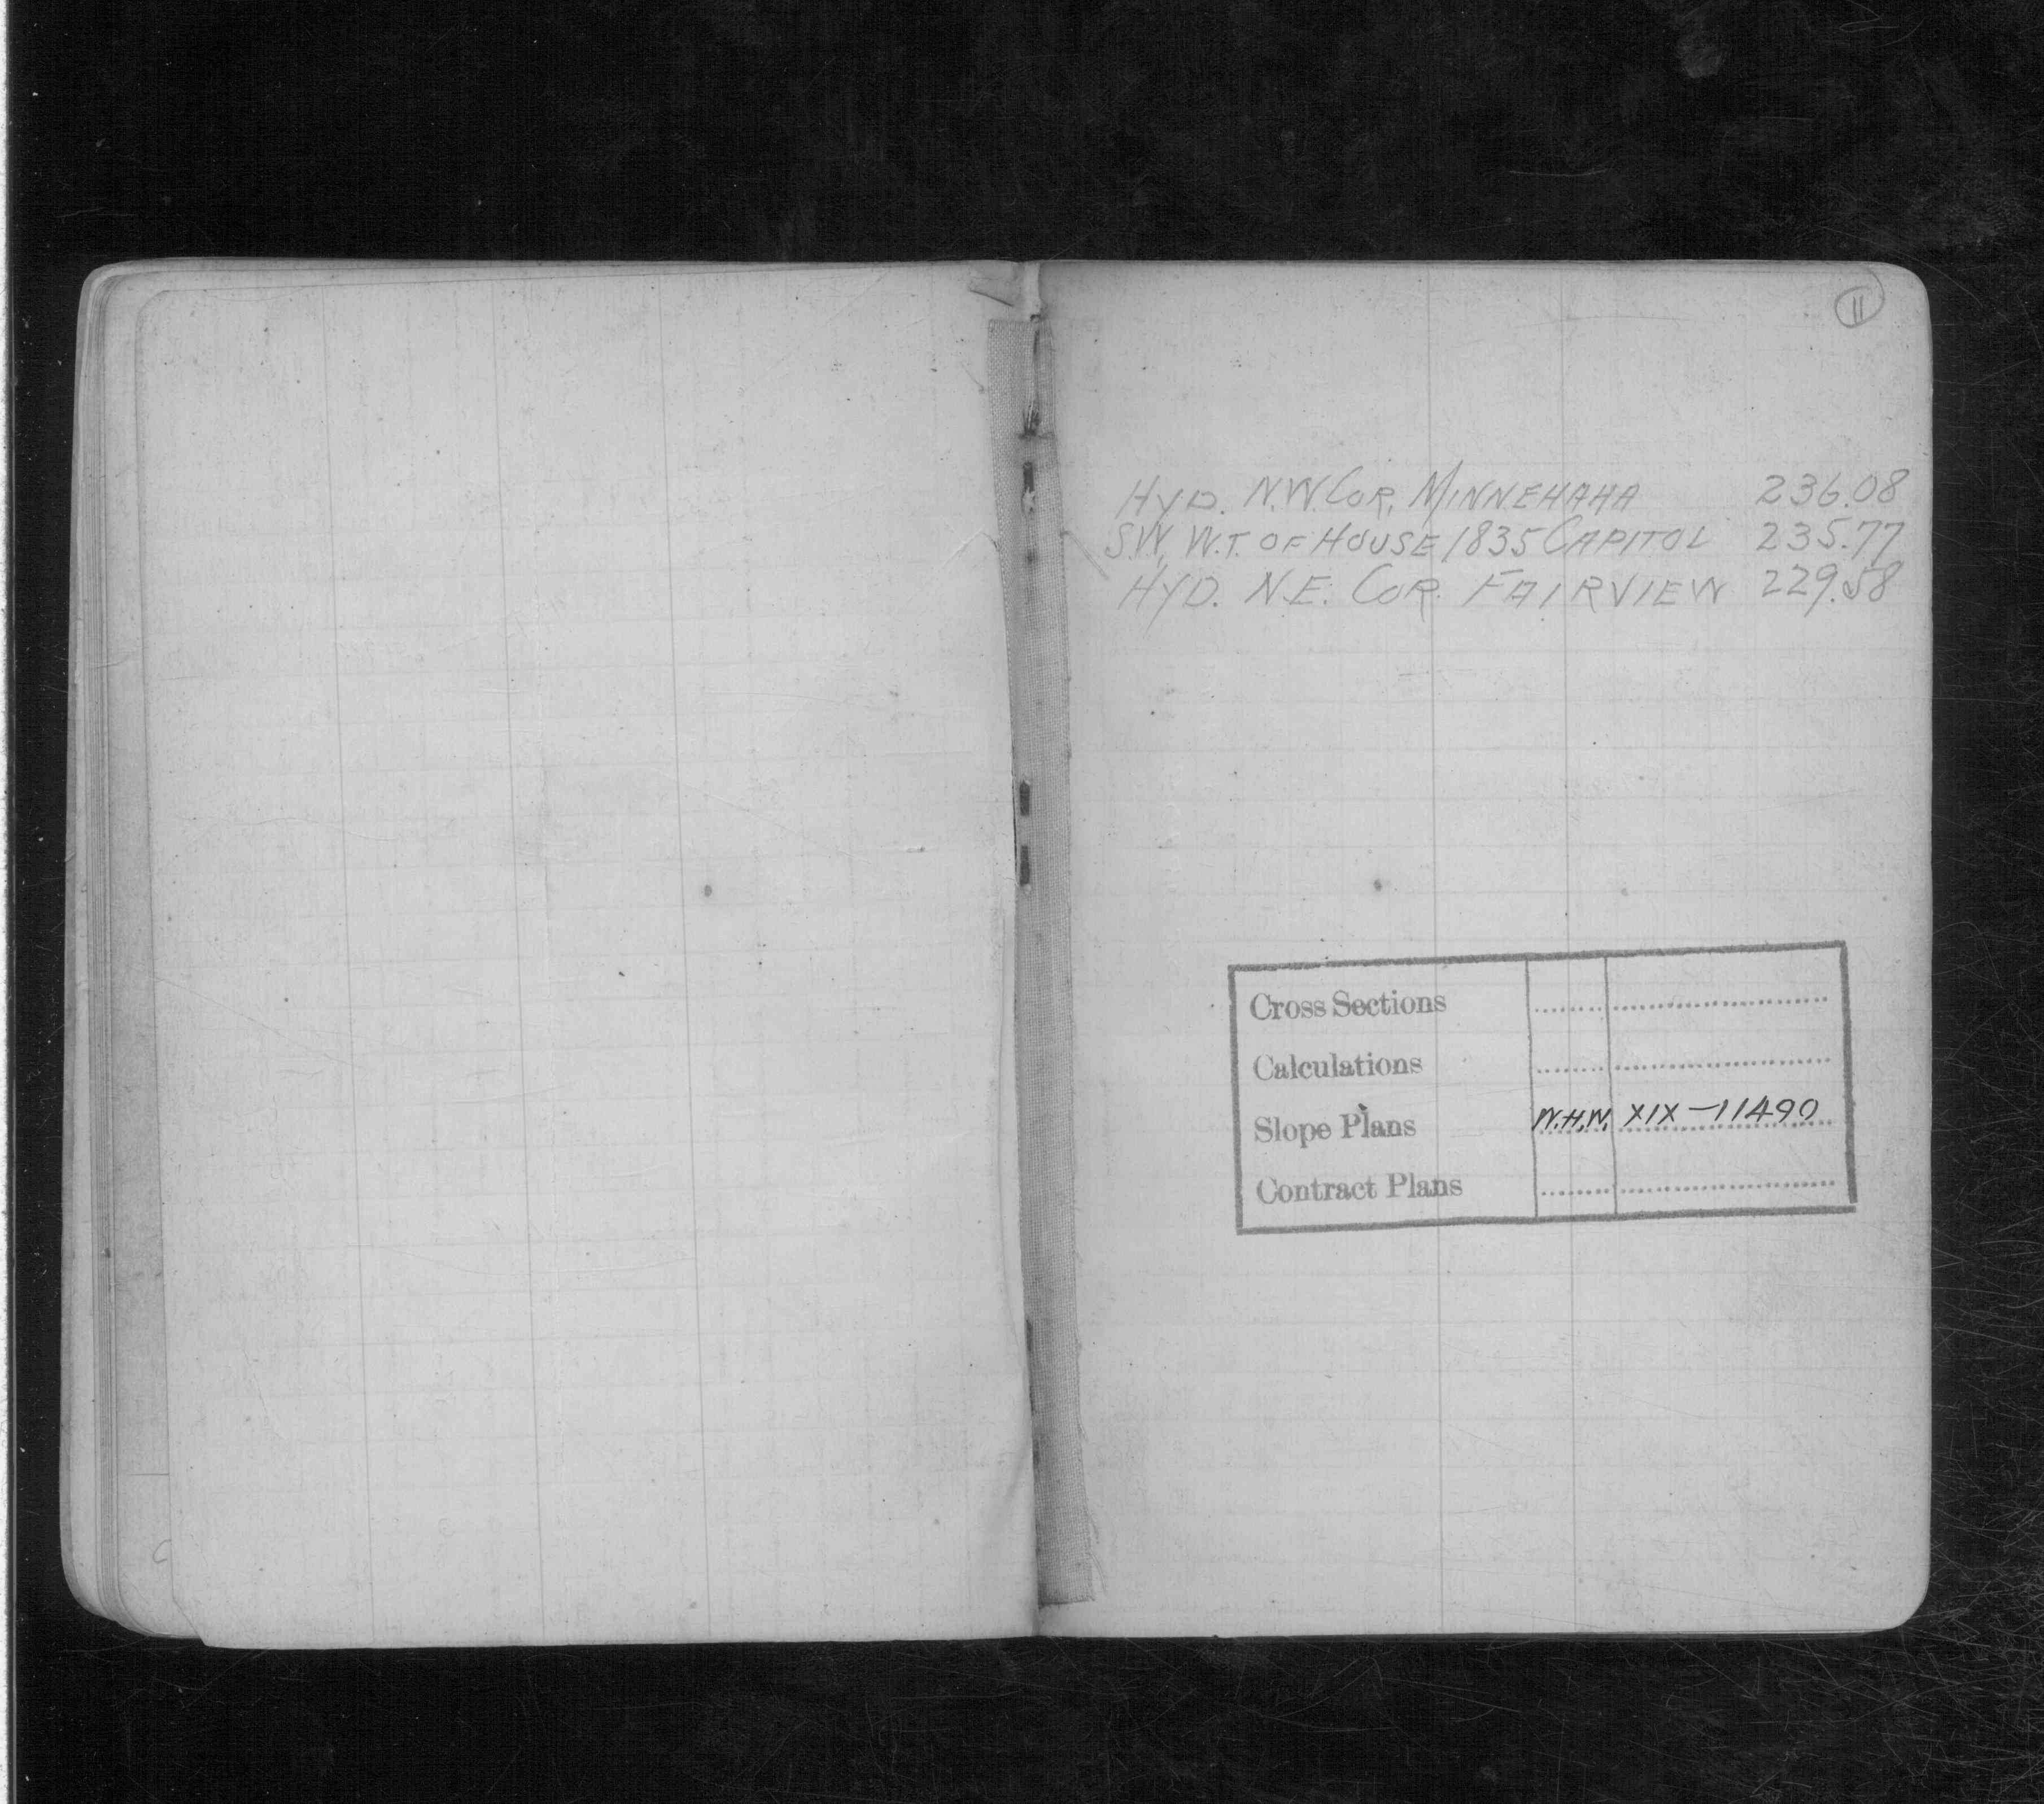 11
HYD. N.W. COR. MINNEHAHA 236.08
S.W. W.T. OF HOUSE 1835 CAPITOL 235.77
HYD. N.E. COR. FAIRVIEW 229.58
Cross Sections
Calculations
Slope Plans W.H.W. XIX-11490
Contract Plans